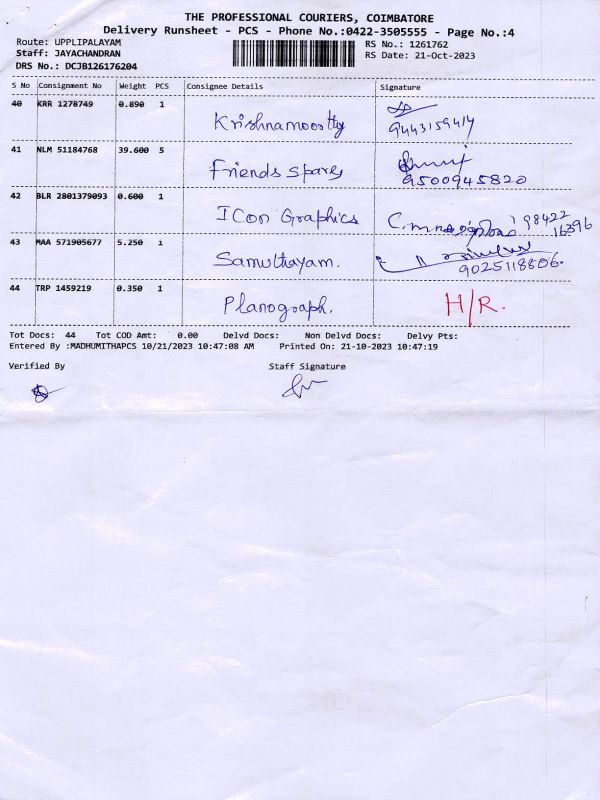 THE PROFESSIONAL COURIERS, COIMBATORE
Delivery Runsheet - PCS - Phone No.:0422-3505555 - Page No.:4
Route: UPPLIPALAYAM
Staff: JAYACHANDRAN
DRS No.: DCJB126176204
RS No.: 1261762
RS Date: 21-Oct-2023
S No Consignment No Weight PCS Consignee Details Signature
40 KRR 1278749 0.890 1 Krishnamoorthy 9443159414
41 NLM 51184768 39.600 5 Friends Spares 9500945820
42 BLR 2801379093 0.600 1 ICon Graphics 98422 16396
43 MAA 571905677 5.250 1 Samuthayam. 9025118806.
44 TRP 1459219 0.350 1 Planograph. H/R.
Tot Docs: 44 Tot COD Amt: 0.00 Delvd Docs: Non Delvd Docs: Delvy Pts:
Entered By :MADHUMITHAPCS 10/21/2023 10:47:08 AM Printed On: 21-10-2023 10:47:19
Verified By Staff Signature